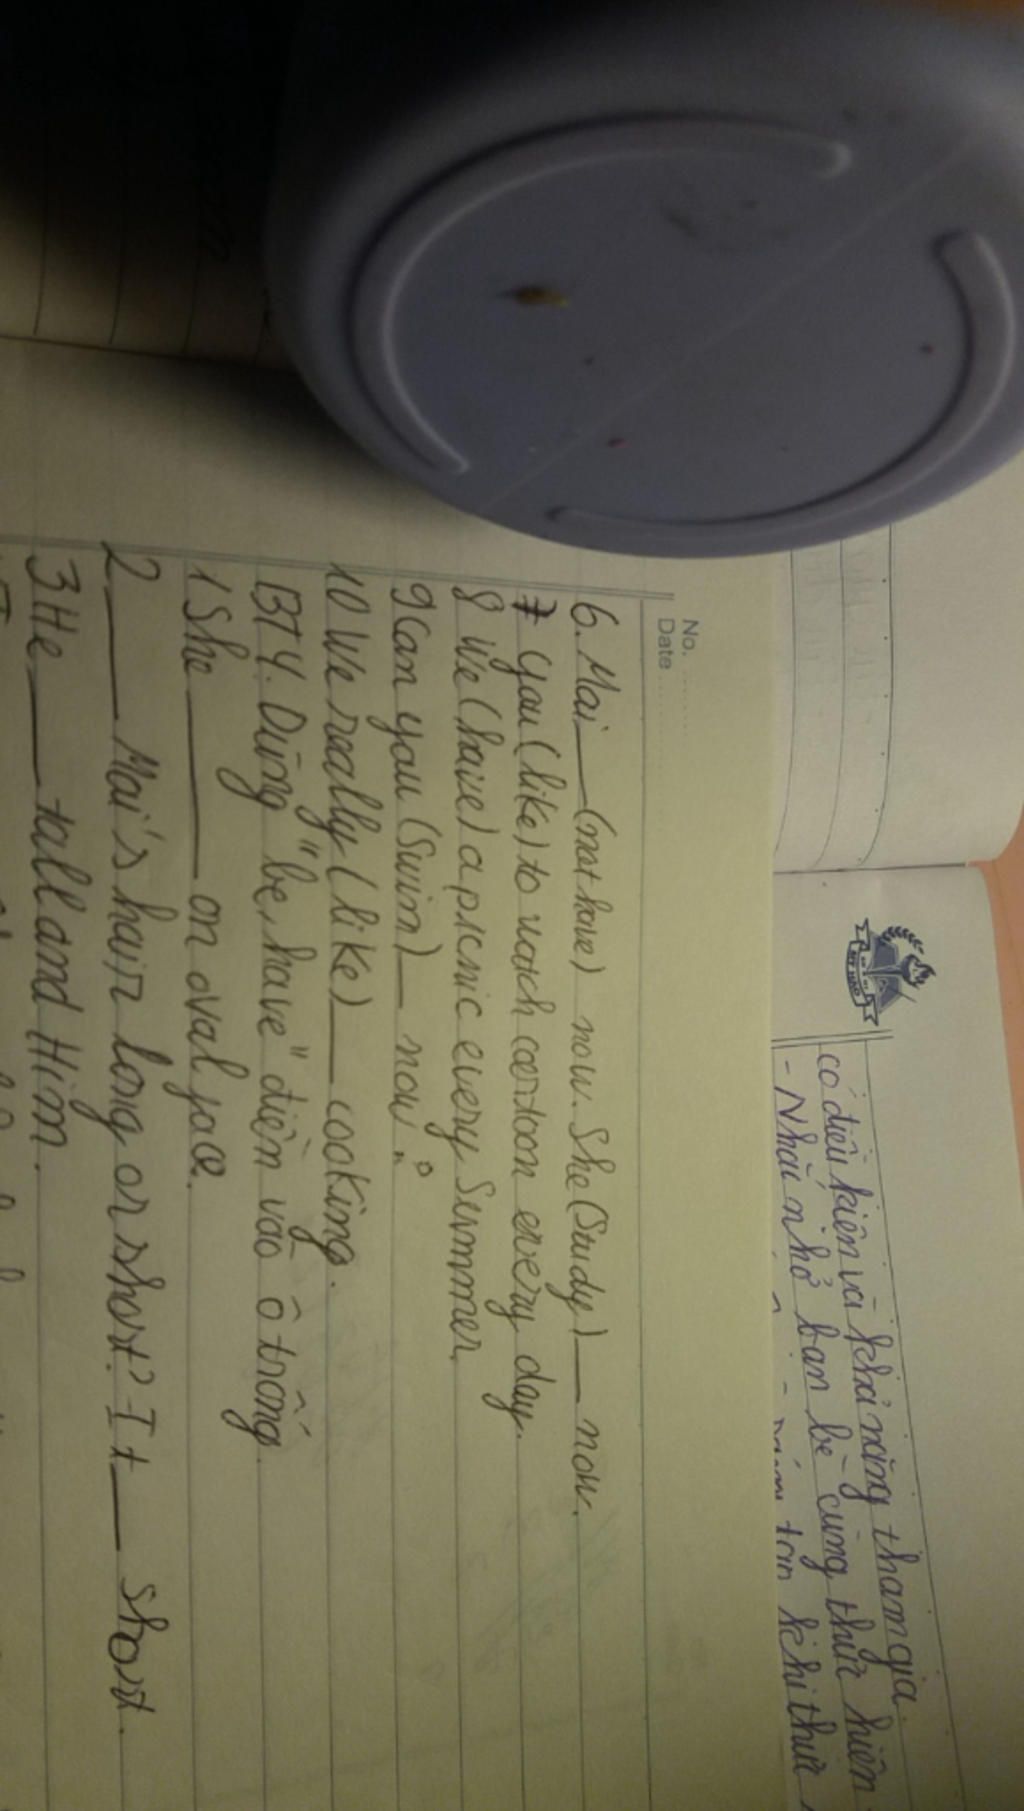 có điều kiện và khả năng tham gia.
- Nhắc nhở bạn bè cùng thực hiện
khi thực
No.
Date
6. Mai __ (not have) now. She (Study) __ now.
7 You (like) to watch cartoon every day.
8 We (have) a picnic every Summer.
9 Can you (Swim) __ now?
10 We really (like) __ cooking.
BT4. Dùng "be, have" điền vào ô trống.
1 She ____ an oval face.
2 ___ Mai's hair long or short? It __ short.
3 He ___ tall and thin.